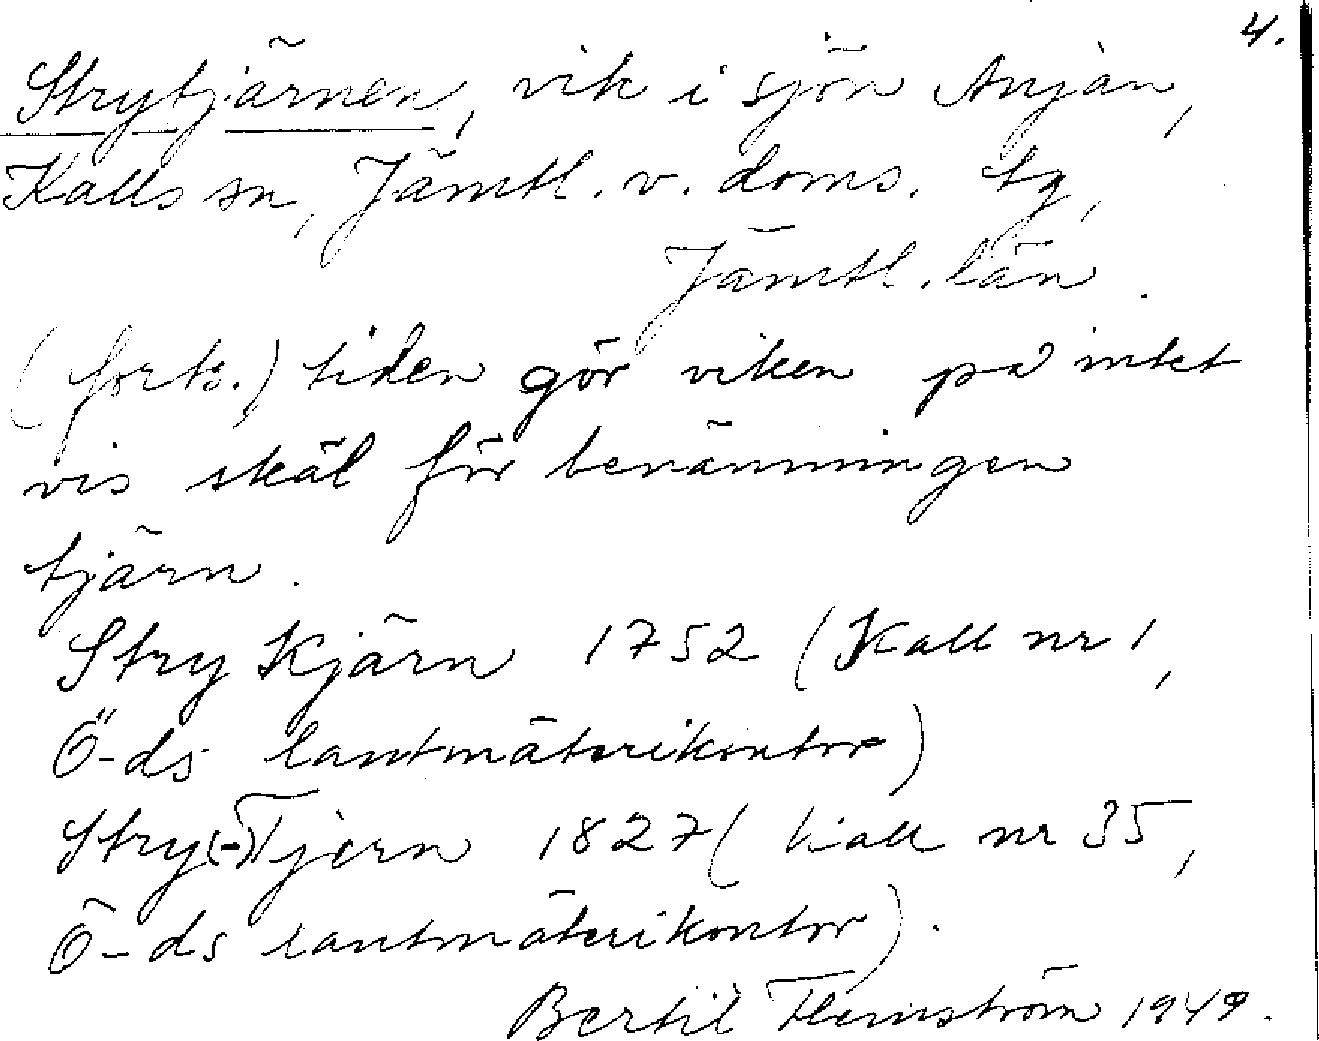 4.
Strytjärnen, vik i sjön Anjan,
Kalls sn, Jämtl. v. doms. tg,
Jämtl. län.
(forts.) tiden gör viken på intet
vis skäl för benämningen
tjärn.
Stry Kjärn 1752 (Kall nr 1,
Ö-ds lantmäterikontor)
Stry(-)Tjern 1827 (Kall nr 35,
Ö-ds lantmäterikontor).
Bertil Flemström 1949.